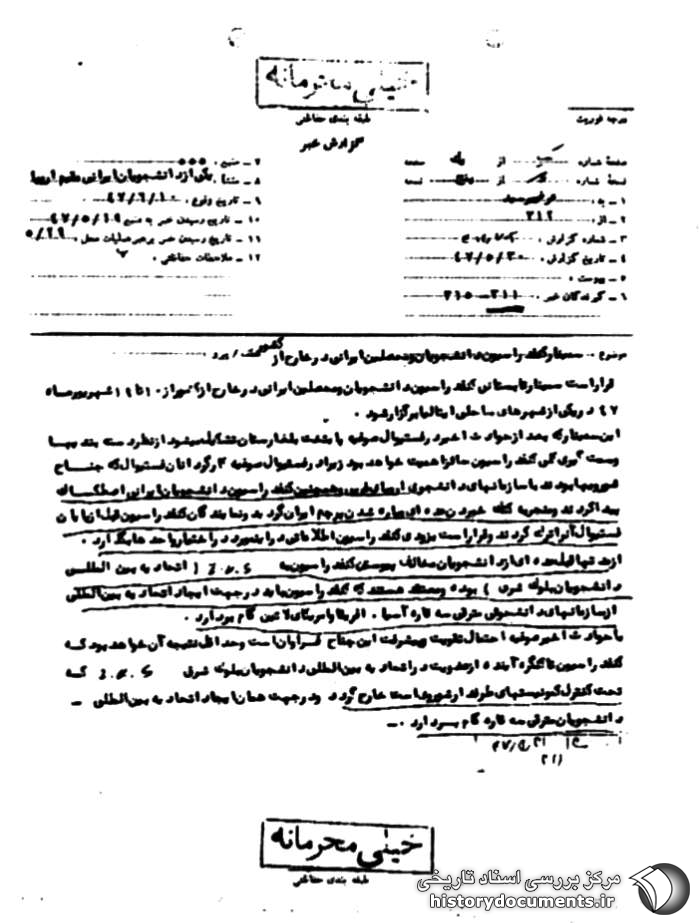 خیلی محرمانه
طبقه بندی حفاظتی
درجه فوریت
گزارش خبر
صفحه شماره از یک صفحه
نسخه شماره از پنج نسخه
۱ - به :
۲ - از : ۳۱۲
۳ - شماره گزارش :
۴ - تاریخ گزارش : ۴۷/۵/۳۰
۵ - پیوست :
۶ - گیرندگان خبر : ۳۱۱ - ۳۱۵
۷ - منبع :
۸ - منشأ : یکی از دانشجویان ایرانی مقیم اروپا
۹ - تاریخ وقوع : ۴۷/۶/۱۰
۱۰ - تاریخ رسیدن خبر به منبع ۴۷/۵/۱۹
۱۱ - تاریخ رسیدن خبر برهبر عملیات محل ۵/۲۹
۱۲ - ملاحظات حفاظتی :
موضوع : سمینار کنفدراسیون دانشجویان و محصلین ایرانی در خارج از کشور
قرار است سمینار تابستانی کنفدراسیون دانشجویان و محصلین ایرانی در خارج از کشور از ۱۰ تا ۱۹ شهریور ماه
۴۷ در یکی از شهرهای ساحلی ایتالیا برگزار شود .
این سمینار که بعد از حوادث اخیر در فستیوال صوفیه پایتخت بلغارستان تشکیل میشود از نظر دسته بندیها
و سمت گیری کلی کنفدراسیون حائز اهمیت خواهد بود زیرا در فستیوال صوفیه گردانان فستیوال که جناح
شورویها بودند با سازمانهای دانشجوئی اروپای غربی و همچنین کنفدراسیون دانشجویان ایرانی اصطکاک
پیدا کردند و منجر به کتک خوردن عده ای و پاره شدن پرچم ایران گردید و نمایندگان کنفدراسیون قبل از پایان
فستیوال آنرا ترک کردند و قرار است بزودی کنفدراسیون اطلاعاتی در اینمورد در اختیار واحدها بگذارد .
از مدتها قبل عده ای از دانشجویان مخالف پیوستن کنفدراسیون به I.U.S ( اتحادیه بین المللی
دانشجویان بلوک شرق ) بوده و معتقد هستند که کنفدراسیون باید در جهت ایجاد اتحادیه بین المللی
از سازمانهای دانشجوئی مترقی سه قاره آسیا ، افریقا و امریکای لاتین گام بردارد .
با حوادث اخیر صوفیه احتمال تقویت و پیشرفت این جناح فراوان است و حداقل نتیجه آن خواهد بود که
کنفدراسیون تا کنگره آینده از عضویت در اتحادیه بین المللی دانشجویان بلوک شرق I.U.S که
تحت کنترل کمونیستهای طرفدار شوروی است خارج گردد و در جهت همان ایجاد اتحادیه بین المللی -
دانشجویان مترقی سه قاره گام بردارد . -
خیلی محرمانه
طبقه بندی حفاظتی
مرکز بررسی اسناد تاریخی
historydocuments.ir